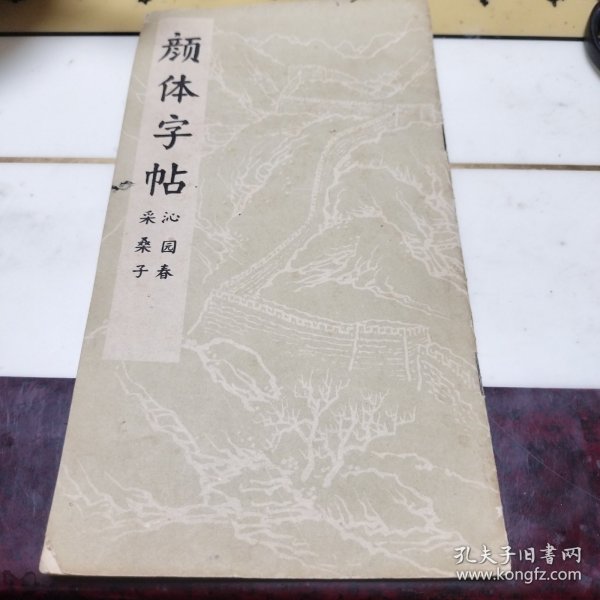 颜体字帖
沁园春
采桑子
孔夫子旧书网
www.kongfz.com